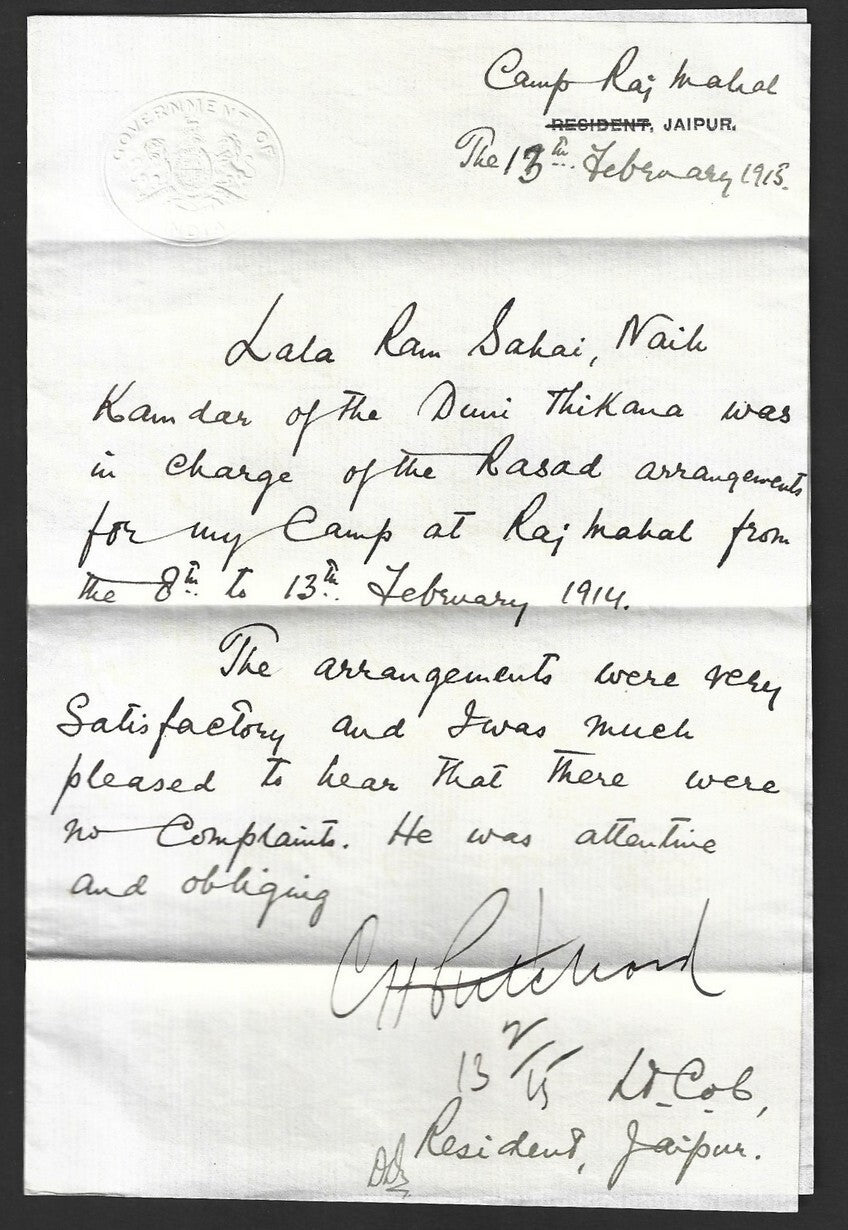 GOVERNMENT OF
INDIA
Camp Raj Mahal
RESIDENT, JAIPUR.
The 13th. February 1915.
Lala Ram Sahai, Naib
Kamdar of the Duni Thikana was
in charge of the Rasad arrangements
for my Camp at Raj Mahal from
the 8th. to 13th. February 1914.
The arrangements were very
Satisfactory and I was much
pleased to hear that there were
no Complaints. He was attentive
and obliging
13/2/15 Lt. Col,
Resident, Jaipur.